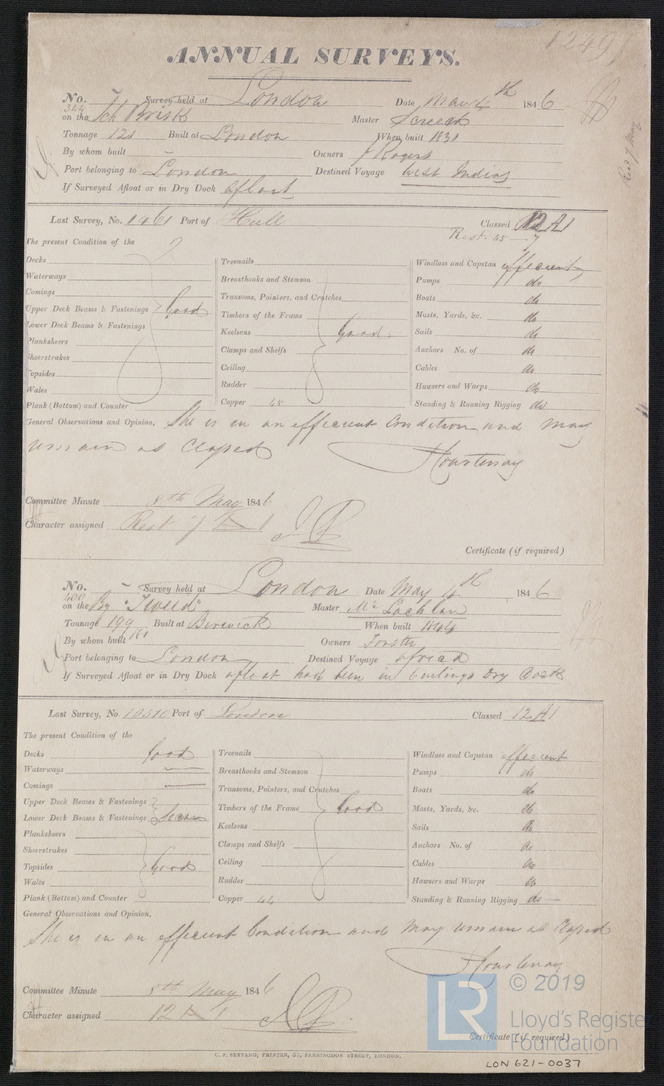 1249
ANNUAL SURVEYS.
No. 324 Survey held at London Date May 4th 1846
on the Sch Brisk Master
Tonnage 121 Built at London When built 1830
By whom built — Owners J Rogers
Port belonging to London Destined Voyage West Indies
If Surveyed Afloat or in Dry Dock afloat
Last Survey, No. 1461 Port of Hull Classed 12 A1
Rest. 45 — 7
The present Condition of the
Decks Treenails Windlass and Capstan efficient
Waterways Breasthooks and Stemson Pumps do
Comings Transoms, Pointers, and Crutches Boats do
Upper Deck Beams & Fastenings Good Timbers of the Frame Masts, Yards, &c. do
Lower Deck Beams & Fastenings Keelsons Good Sails do
Planksheers Clamps and Shelfs Anchors No. of do
Sheerstrakes Ceiling Cables do
Topsides Rudder Hawsers and Warps do
Wales Copper 45 Standing & Running Rigging do
Plank (Bottom) and Counter
General Observations and Opinion, She is in an efficient Condition and may
remain as Classed
Courtenay
Committee Minute 8th May 1846
Character assigned Rest 7 A 1
Certificate (if required)
No. 400 Survey held at London Date May 4th 1846
on the Bg "Tweed" Master Mc Lachlan
Tonnage 199 Built at Berwick When built
By whom built Owners Forster
Port belonging to London Destined Voyage Africa
If Surveyed Afloat or in Dry Dock afloat has been in Dry Dock
Last Survey, No. 10510 Port of London Classed 12 A1
The present Condition of the
Decks Good Treenails Windlass and Capstan efficient
Waterways — Breasthooks and Stemson Pumps do
Comings — Transoms, Pointers, and Crutches Boats do
Upper Deck Beams & Fastenings Timbers of the Frame Good Masts, Yards, &c. do
Lower Deck Beams & Fastenings Keelsons Sails do
Planksheers Clamps and Shelfs Anchors No. of do
Sheerstrakes Ceiling Cables do
Topsides Good Rudder Hawsers and Warps do
Wales Copper 44 Standing & Running Rigging do
Plank (Bottom) and Counter
General Observations and Opinion,
She is in an efficient Condition and may remain as Classed
Courtenay
Committee Minute 8th May 1846
Character assigned 12 A 1
Certificate (if required)
C. F. SEYFANG, PRINTER, 57, FARRINGDON STREET, LONDON.
LR © 2019
Lloyd's Register
Foundation
LON 621-0037